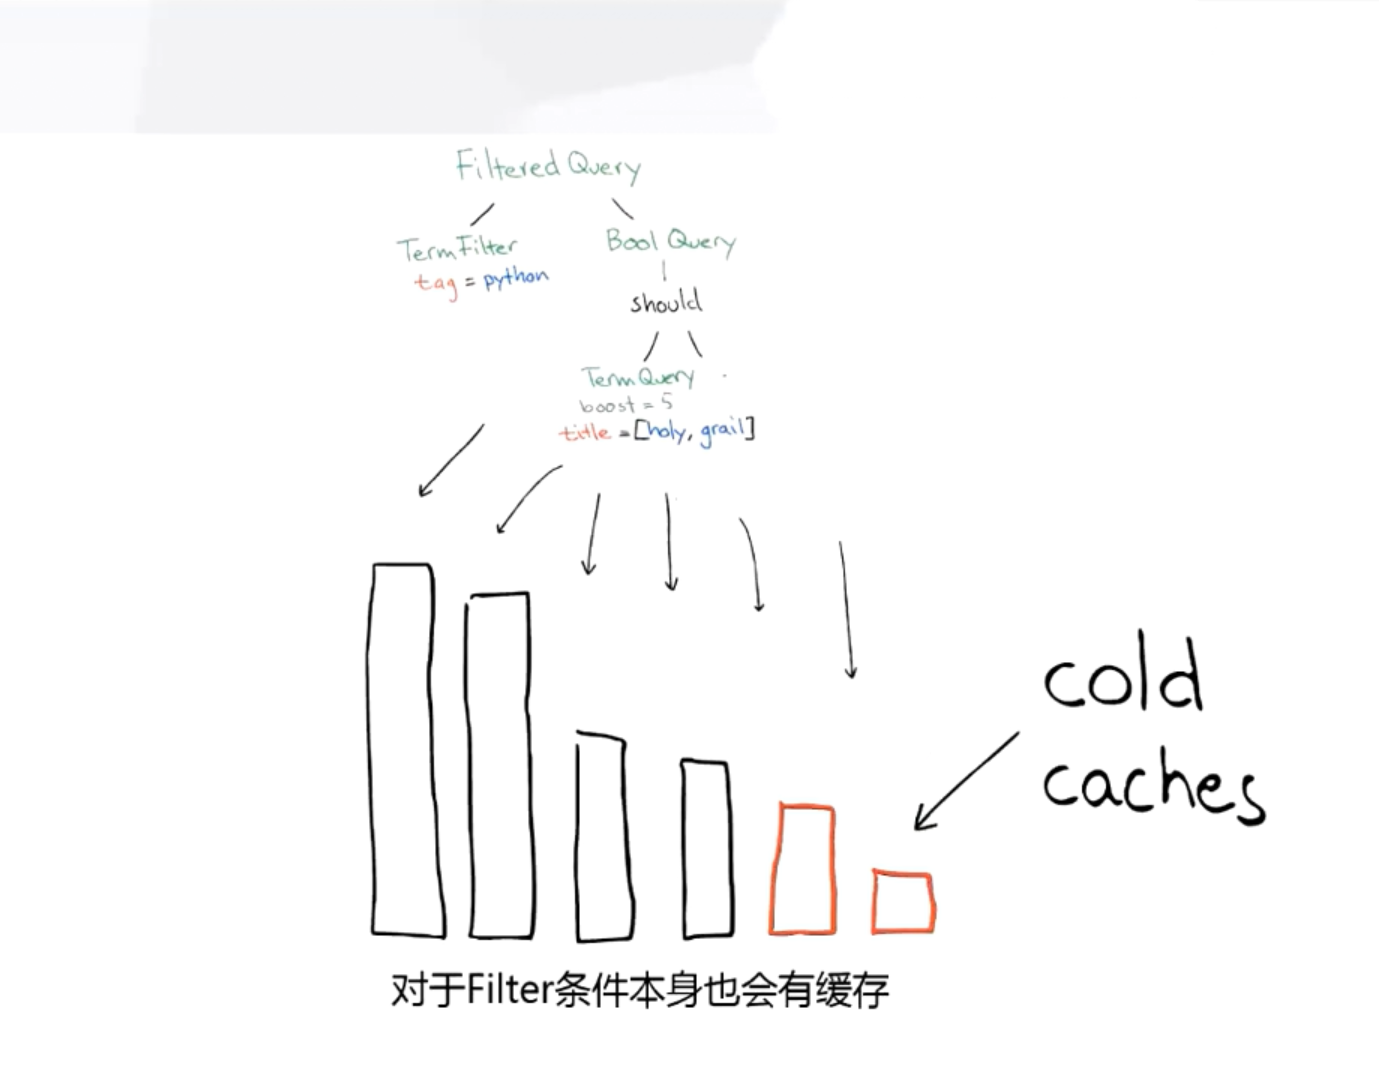 Filtered Query
TermFilter
tag = python
Bool Query
should
TermQuery
boost = 5
title = [holy, grail]
cold
caches
对于Filter条件本身也会有缓存